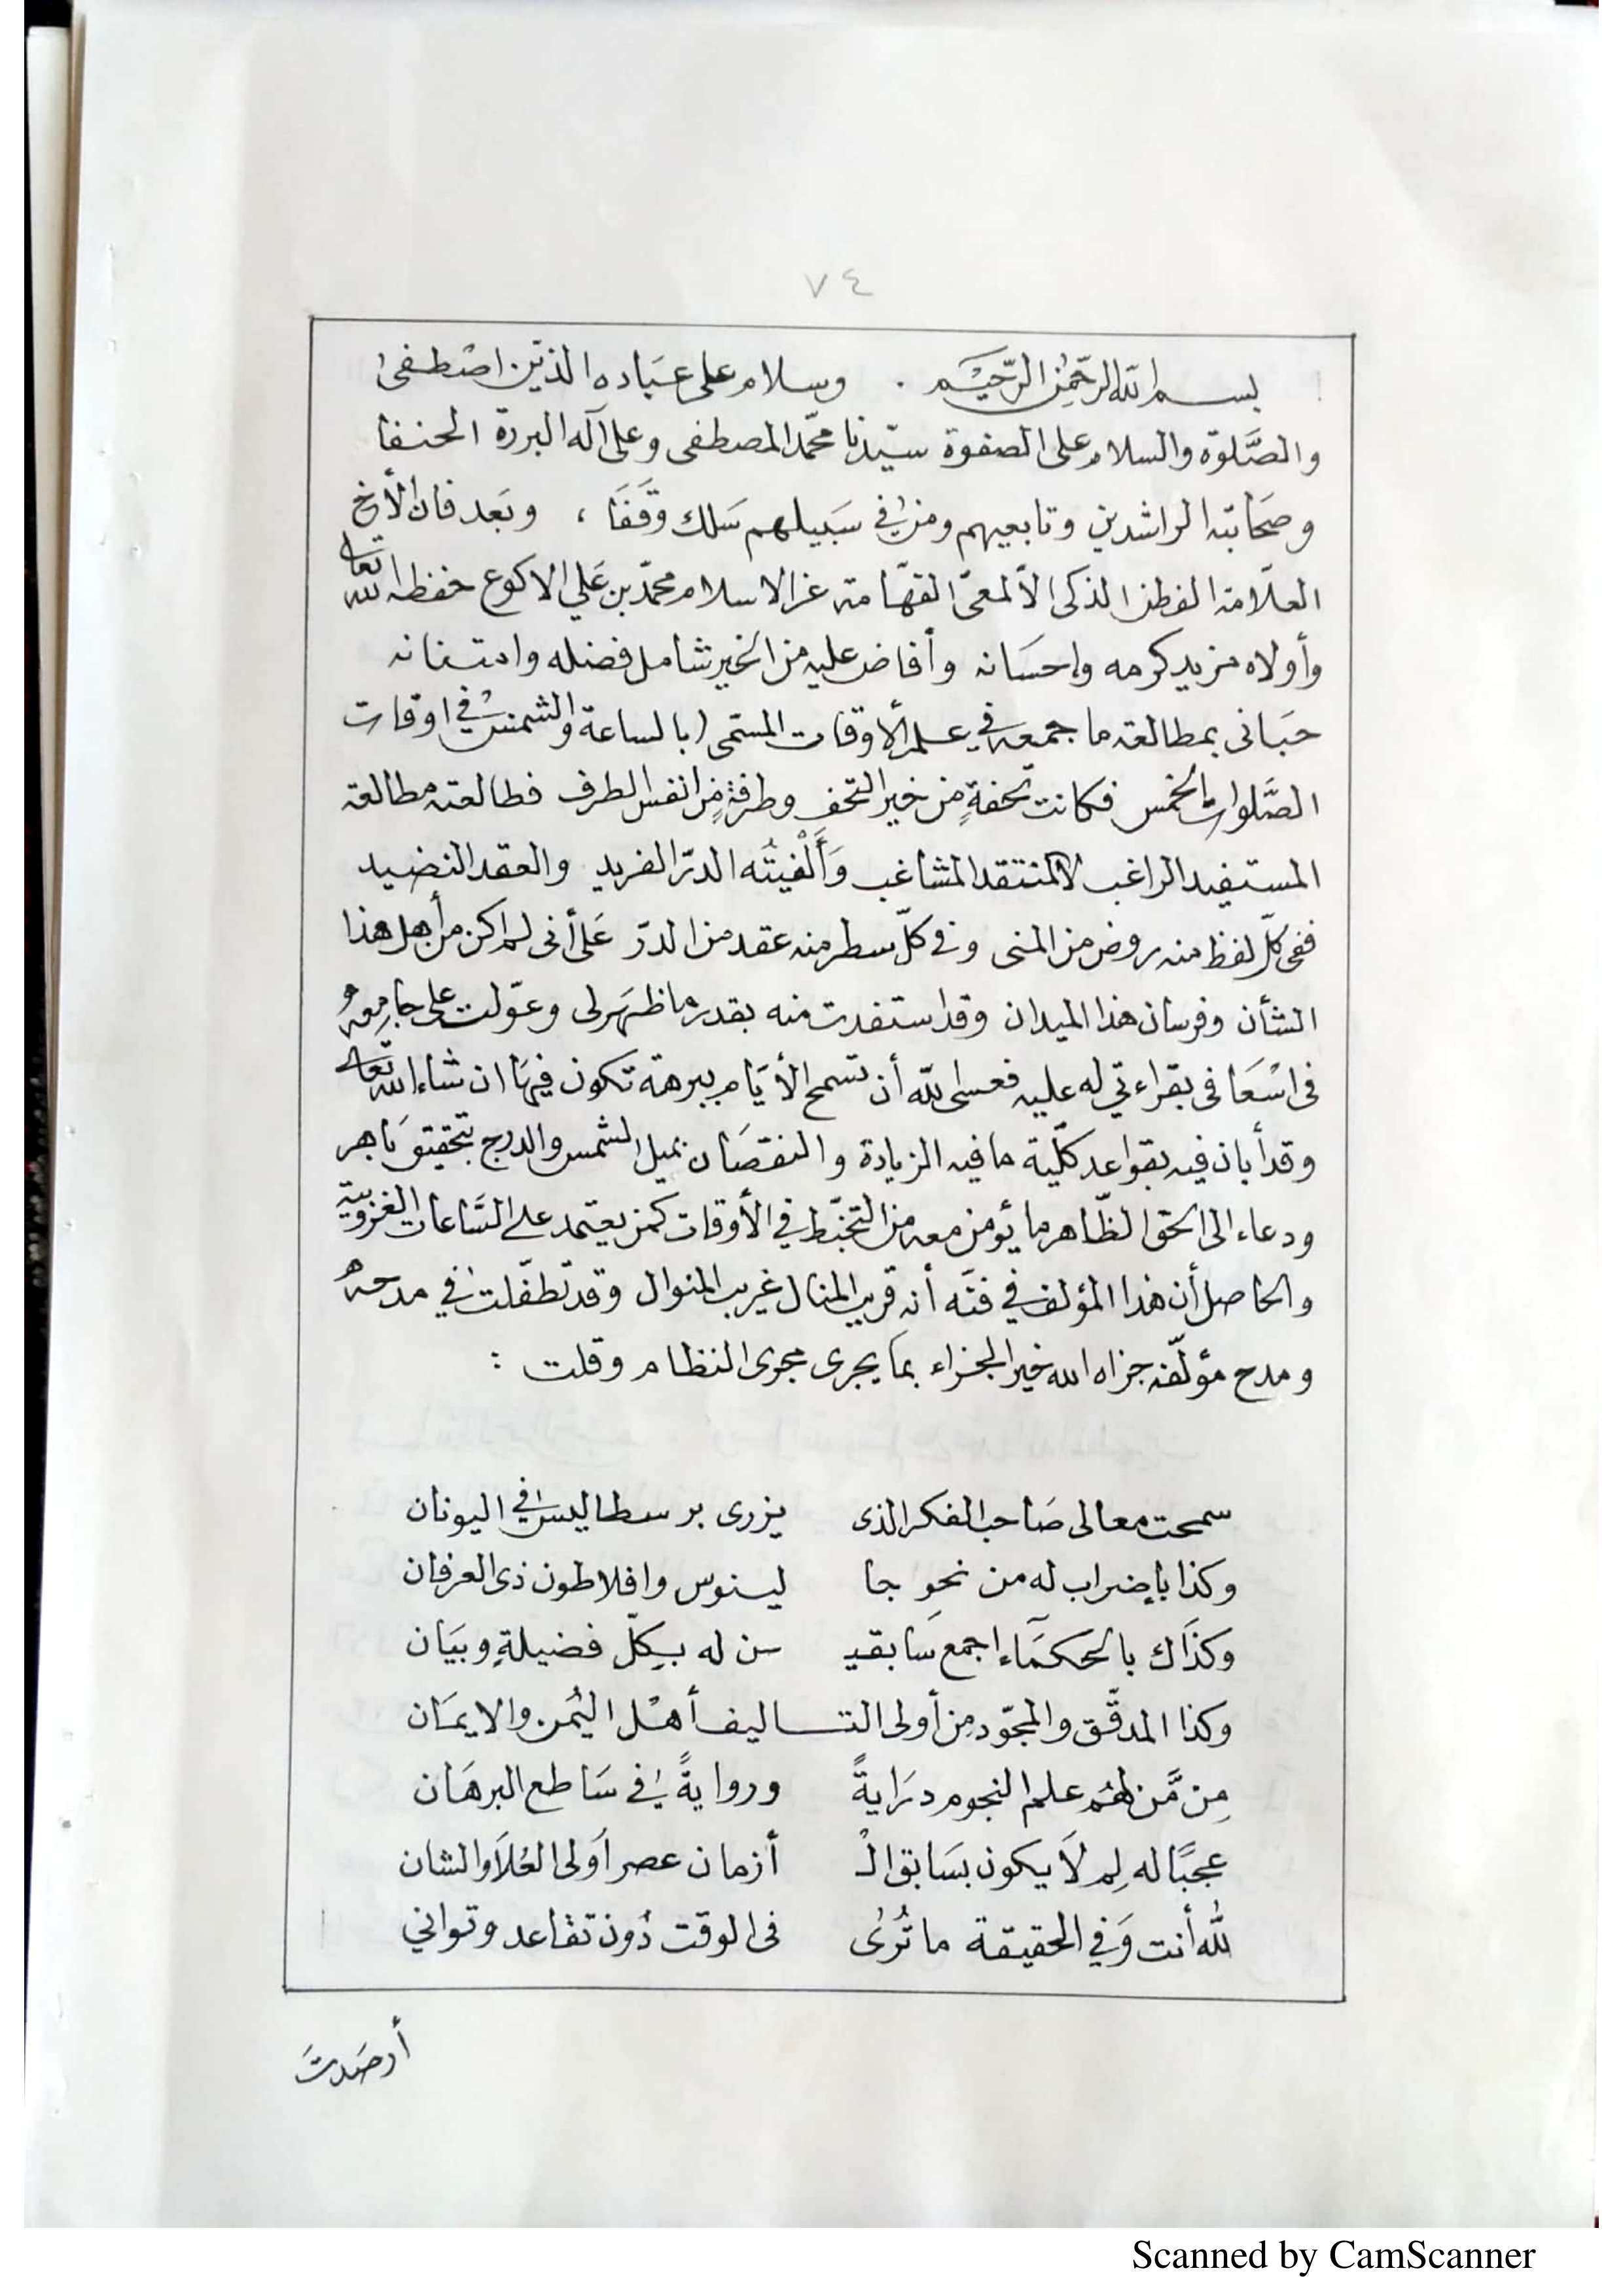 ٧٤
بسم الله الرّحمٰن الرّحيْم . وسلام على عبَاده الذيْن اصْطفىٰ
والصَّلوٰة والسلام على الصفوة سيّدنا محمّد المصطفى وعلى آله البررة الحنفا
وصحَابته الراشدين وتابعيهم ومن في سَبيلهم سَلك وقَفَا ، وبَعد فان الأخ
العلّامة الفطن الذكى الألمعىّ الفهّامة عز الاسلام محمّد بن عَلي الاكوع حفظه الله تعالى
وأولاه مزيد كرمه وإحسَانه وأفاض عليه من الخير شامل فضله وامتنانه
حبَانى بمطالعة ما جمعه في علم الأوقات المسمّى (بالساعة والشمس في اوقات
الصَّلوات الخمس فكانت تحفةٍ من خير التحف وطرفةٍ من انفس الطرف فطالعته مطالعة
المستفيد الراغب لا المنتقد المشاغب وَأَلْفيتُه الدرّ الفريد والعقد النضيد
ففى كلّ لفظ منه روض من المنى وفى كلّ سطر منه عقد من الدرّ عَلى أنى لم اكن من أهل هذا
الشأن وفرسان هذا الميدان وقد استفدت منه بقدر ما ظهَر لى وعوّلت على جامِعهُ
فى اسْعَافى بقراءتي له عليه فعسى الله أن تسمح الأيَام ببرهة تكون فيهَا ان شاء الله تعالى
وقد أبان فيه بقواعد كلّية ما فيه الزيادة والنقصَان بميل الشمس والدرج بتحقيق بَاهر
ودعاء الى الحق الظّاهر ما يؤمن معه من التخبّط في الأوقات كمن يعتمد على السَّاعات الغروبية
والحاصل أن هذا المؤلف في فنّه أنه قريب المنال غريب المنوال وقد تطفّلت في مدحهُ
ومدح مؤلّفه جزاه الله خير الجزاء بما يجرى مجرى النظام وقلت :
سمحت معالى صَاحب الفكر الذى يزرى برسطاليس في اليونان
وكذا بإضراب له من نحوِ جا لينوس وافلاطون ذى العرفان
وكذَاك بالحكمَآءِ اجمع سَابقيـ ـن له بكلّ فضيلةٍ وبيَان
وكذا المدقّق والمجوّد مِن أولى التـــاليف أهْل اليُمن والايمَان
مِن مَّن لهُم علم النجوم درَايةً وروايةً في سَاطع البرهَان
عجبًا له لِم لاَ يكون بسَابق الْـ أزمان عصر أولى العُلاَ والشان
للهِ أنت وَفي الحقيقة ما تُرىٰ فى الوقت دُون تقاعد وتواني
أرصَدتَ
Scanned by CamScanner